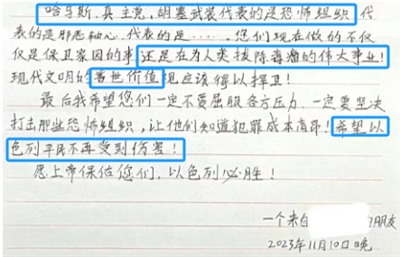 哈马斯、真主党、胡塞武装代表的是恐怖组织 代
表的是邪恶轴心，代表的是……，您们现在做的不仅
仅是保卫家园的事，还是在为人类拔除毒瘤的伟大事业！
现代文明的普世价值观应该得以捍卫！
最后我希望您们一定不要屈服各方压力，一定要坚决
打击那些恐怖组织，让他们知道犯罪成本高昂！希望以
色列平民不再受到伤害！
愿上帝保佑您们，以色列必胜！
一个来自 的朋友
2023年11月10日晚